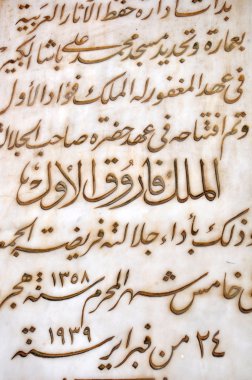 بدأت إدارة حفظ الآثار العربية
بعمارة وتجديد مسجد محمد على باشا الكبير
فى عهد المغفور له الملك فؤاد الأول
وتم افتتاحه فى عهد حضرة صاحب الجلالة
الملك فاروق الأول
وذلك بأداء جلالته فريضة الجمعة
فى خامس شهر المحرم سنة ١٣٥٨ هجرية
٢٤ من فبراير سنة ١٩٣٩